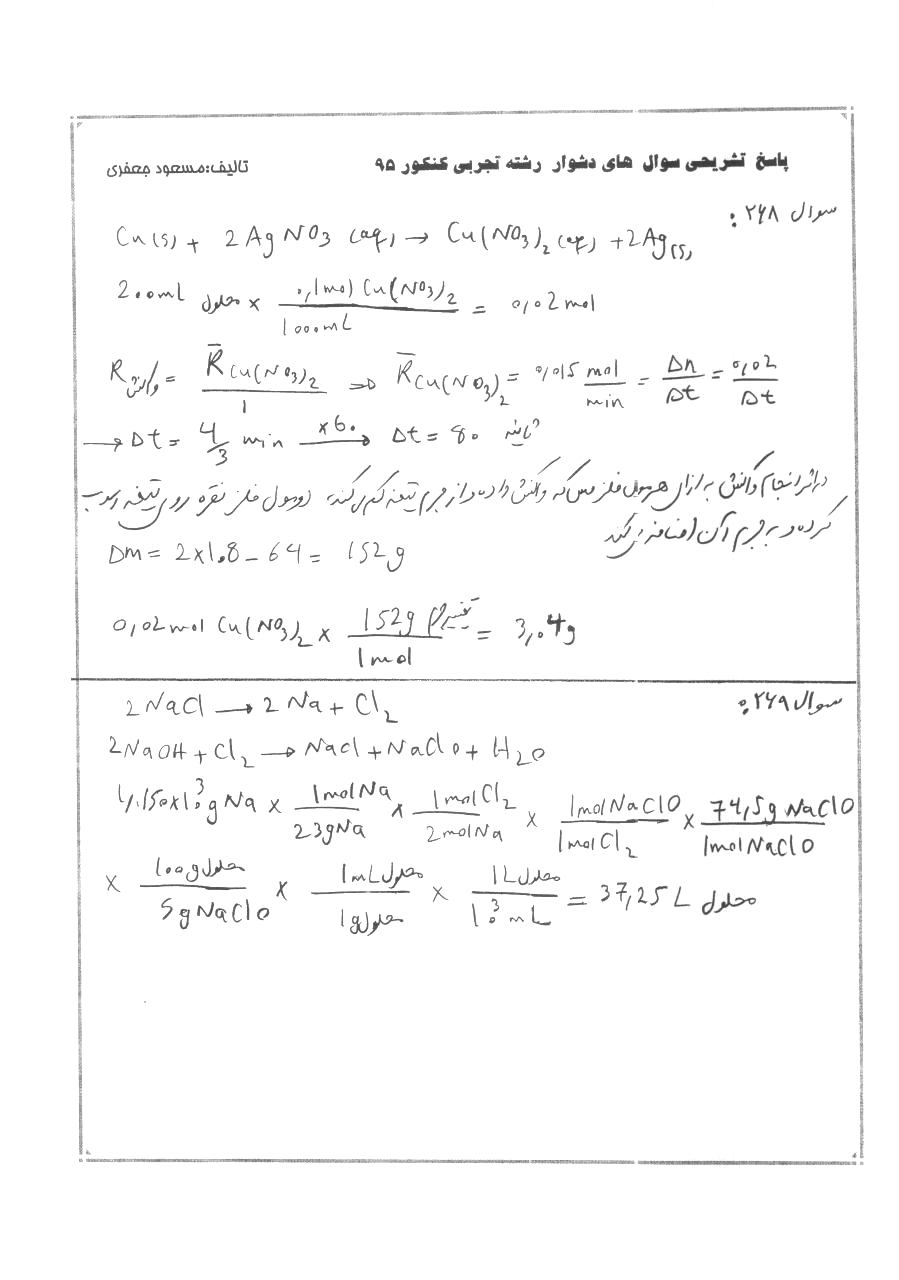 پاسخ تشریحی سوال های دشوار رشته تجربی کنکور ۹۵ تالیف:مسعود جعفری
سوال ۲۶۸ :
Cu(s) + 2AgNO3 (aq) → Cu(NO3)2 (aq) + 2Ag(s)
200mL محلول × 0,1mol Cu(NO3)2 / 1000mL = 0,02 mol
R واکنش = R̄ Cu(NO3)2 / 1 ⇒ R̄ Cu(NO3)2 = 0,015 mol/min = Δn/Δt = 0,02/Δt
→ Δt = 4/3 min ×60 → Δt = 80 ثانیه
در اثر انجام واکنش به ازای هر مول فلز مس که واکنش داده و از جرم تیغه کم می‌کند، دو مول فلز نقره روی تیغه رسوب
کرده و به جرم آن اضافه می‌کند
Δm = 2×108 - 64 = 152g
0,02 mol Cu(NO3)2 × 152g تغییر جرم / 1mol = 3,04g
سوال ۲۶۹ :
2NaCl → 2Na + Cl2
2NaOH + Cl2 → NaCl + NaClO + H2O
1,150×10^3 g Na × 1molNa / 23gNa × 1molCl2 / 2molNa × 1molNaClO / 1molCl2 × 74,5g NaClO / 1molNaClO
× 100g محلول / 5g NaClO × 1mL محلول / 1g محلول × 1L محلول / 10^3 mL = 37,25 L محلول